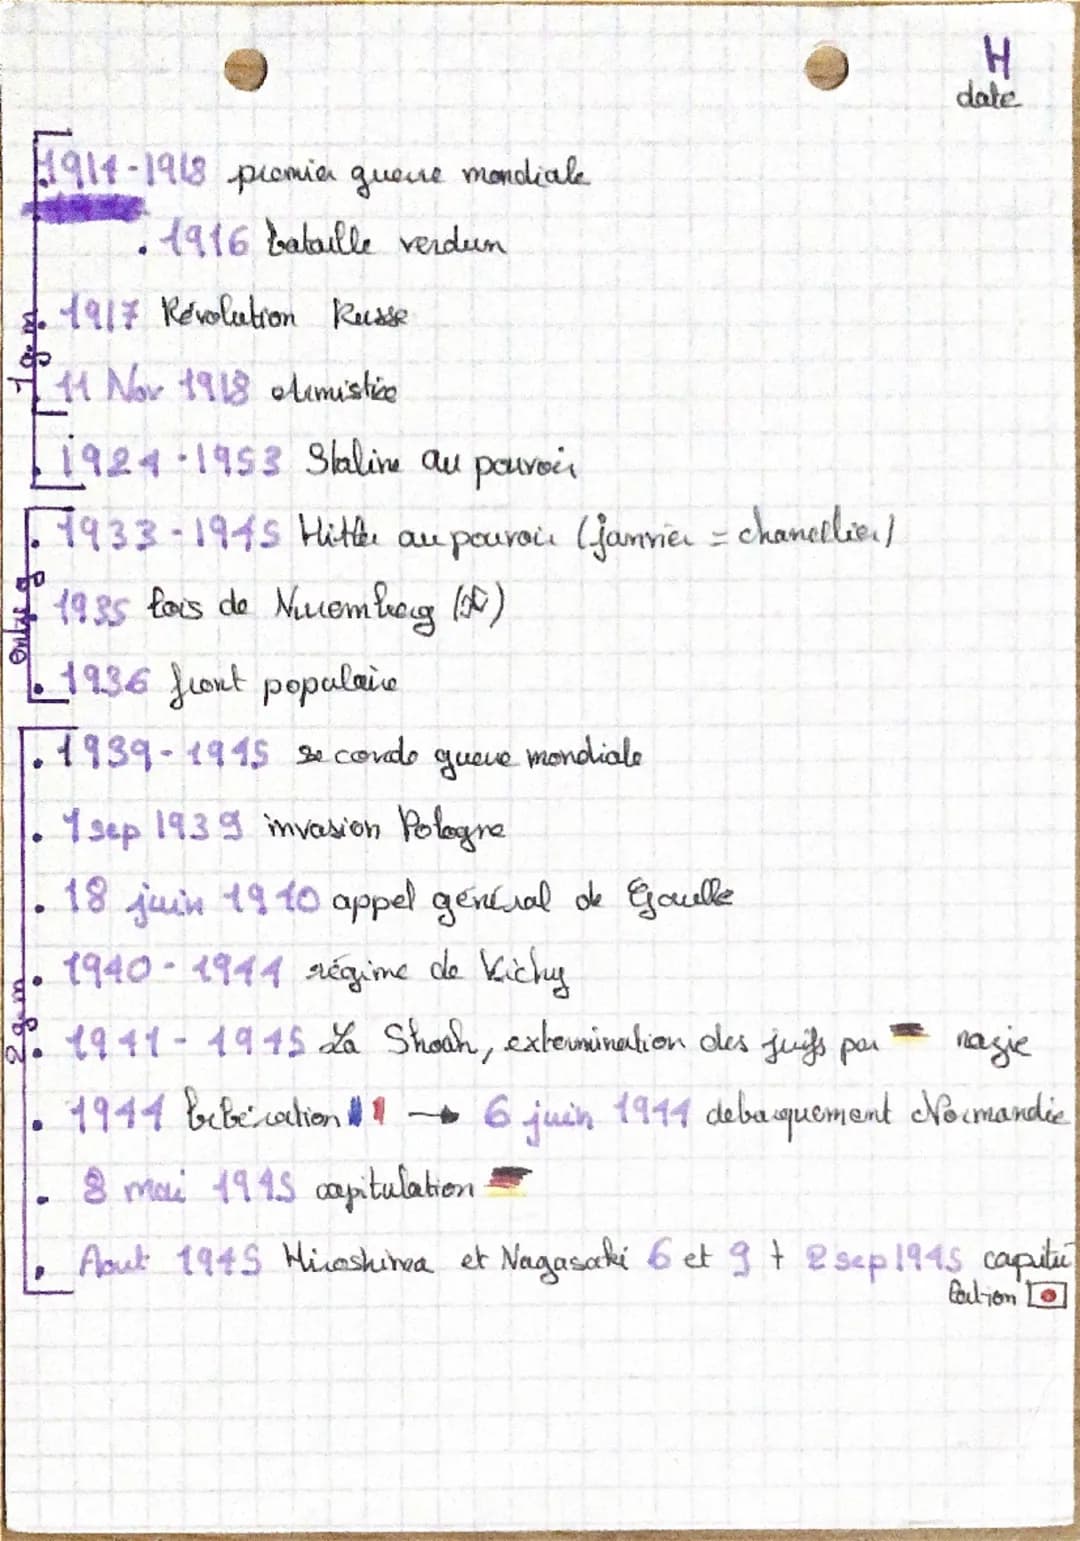 H
date
1914-1918 premier guerre mondiale
. 1916 bataille verdun
. 1917 Révolution Russe
11 Nov 1918 Armistice
. 1924-1953 Staline au pouvoir
1 g.m
. 1933-1945 Hitler au pouvoir (janvier = chancellier)
1935 lois de Nuremberg (✡)
. 1936 front populaire
entre g
. 1939-1945 seconde guerre mondiale
. 1 sep 1939 invasion Pologne
. 18 juin 1940 appel général de Gaulle
. 1940-1944 régime de Vichy
. 1941-1945 La Shoah, extermination des juifs par nazie
. 1944 libération → 6 juin 1944 debarquement Normandie
. 8 mai 1945 capitulation
. Aout 1945 Hiroshima et Nagasaki 6 et 9 + 2 sep 1945 capitu
lation
2 g.m